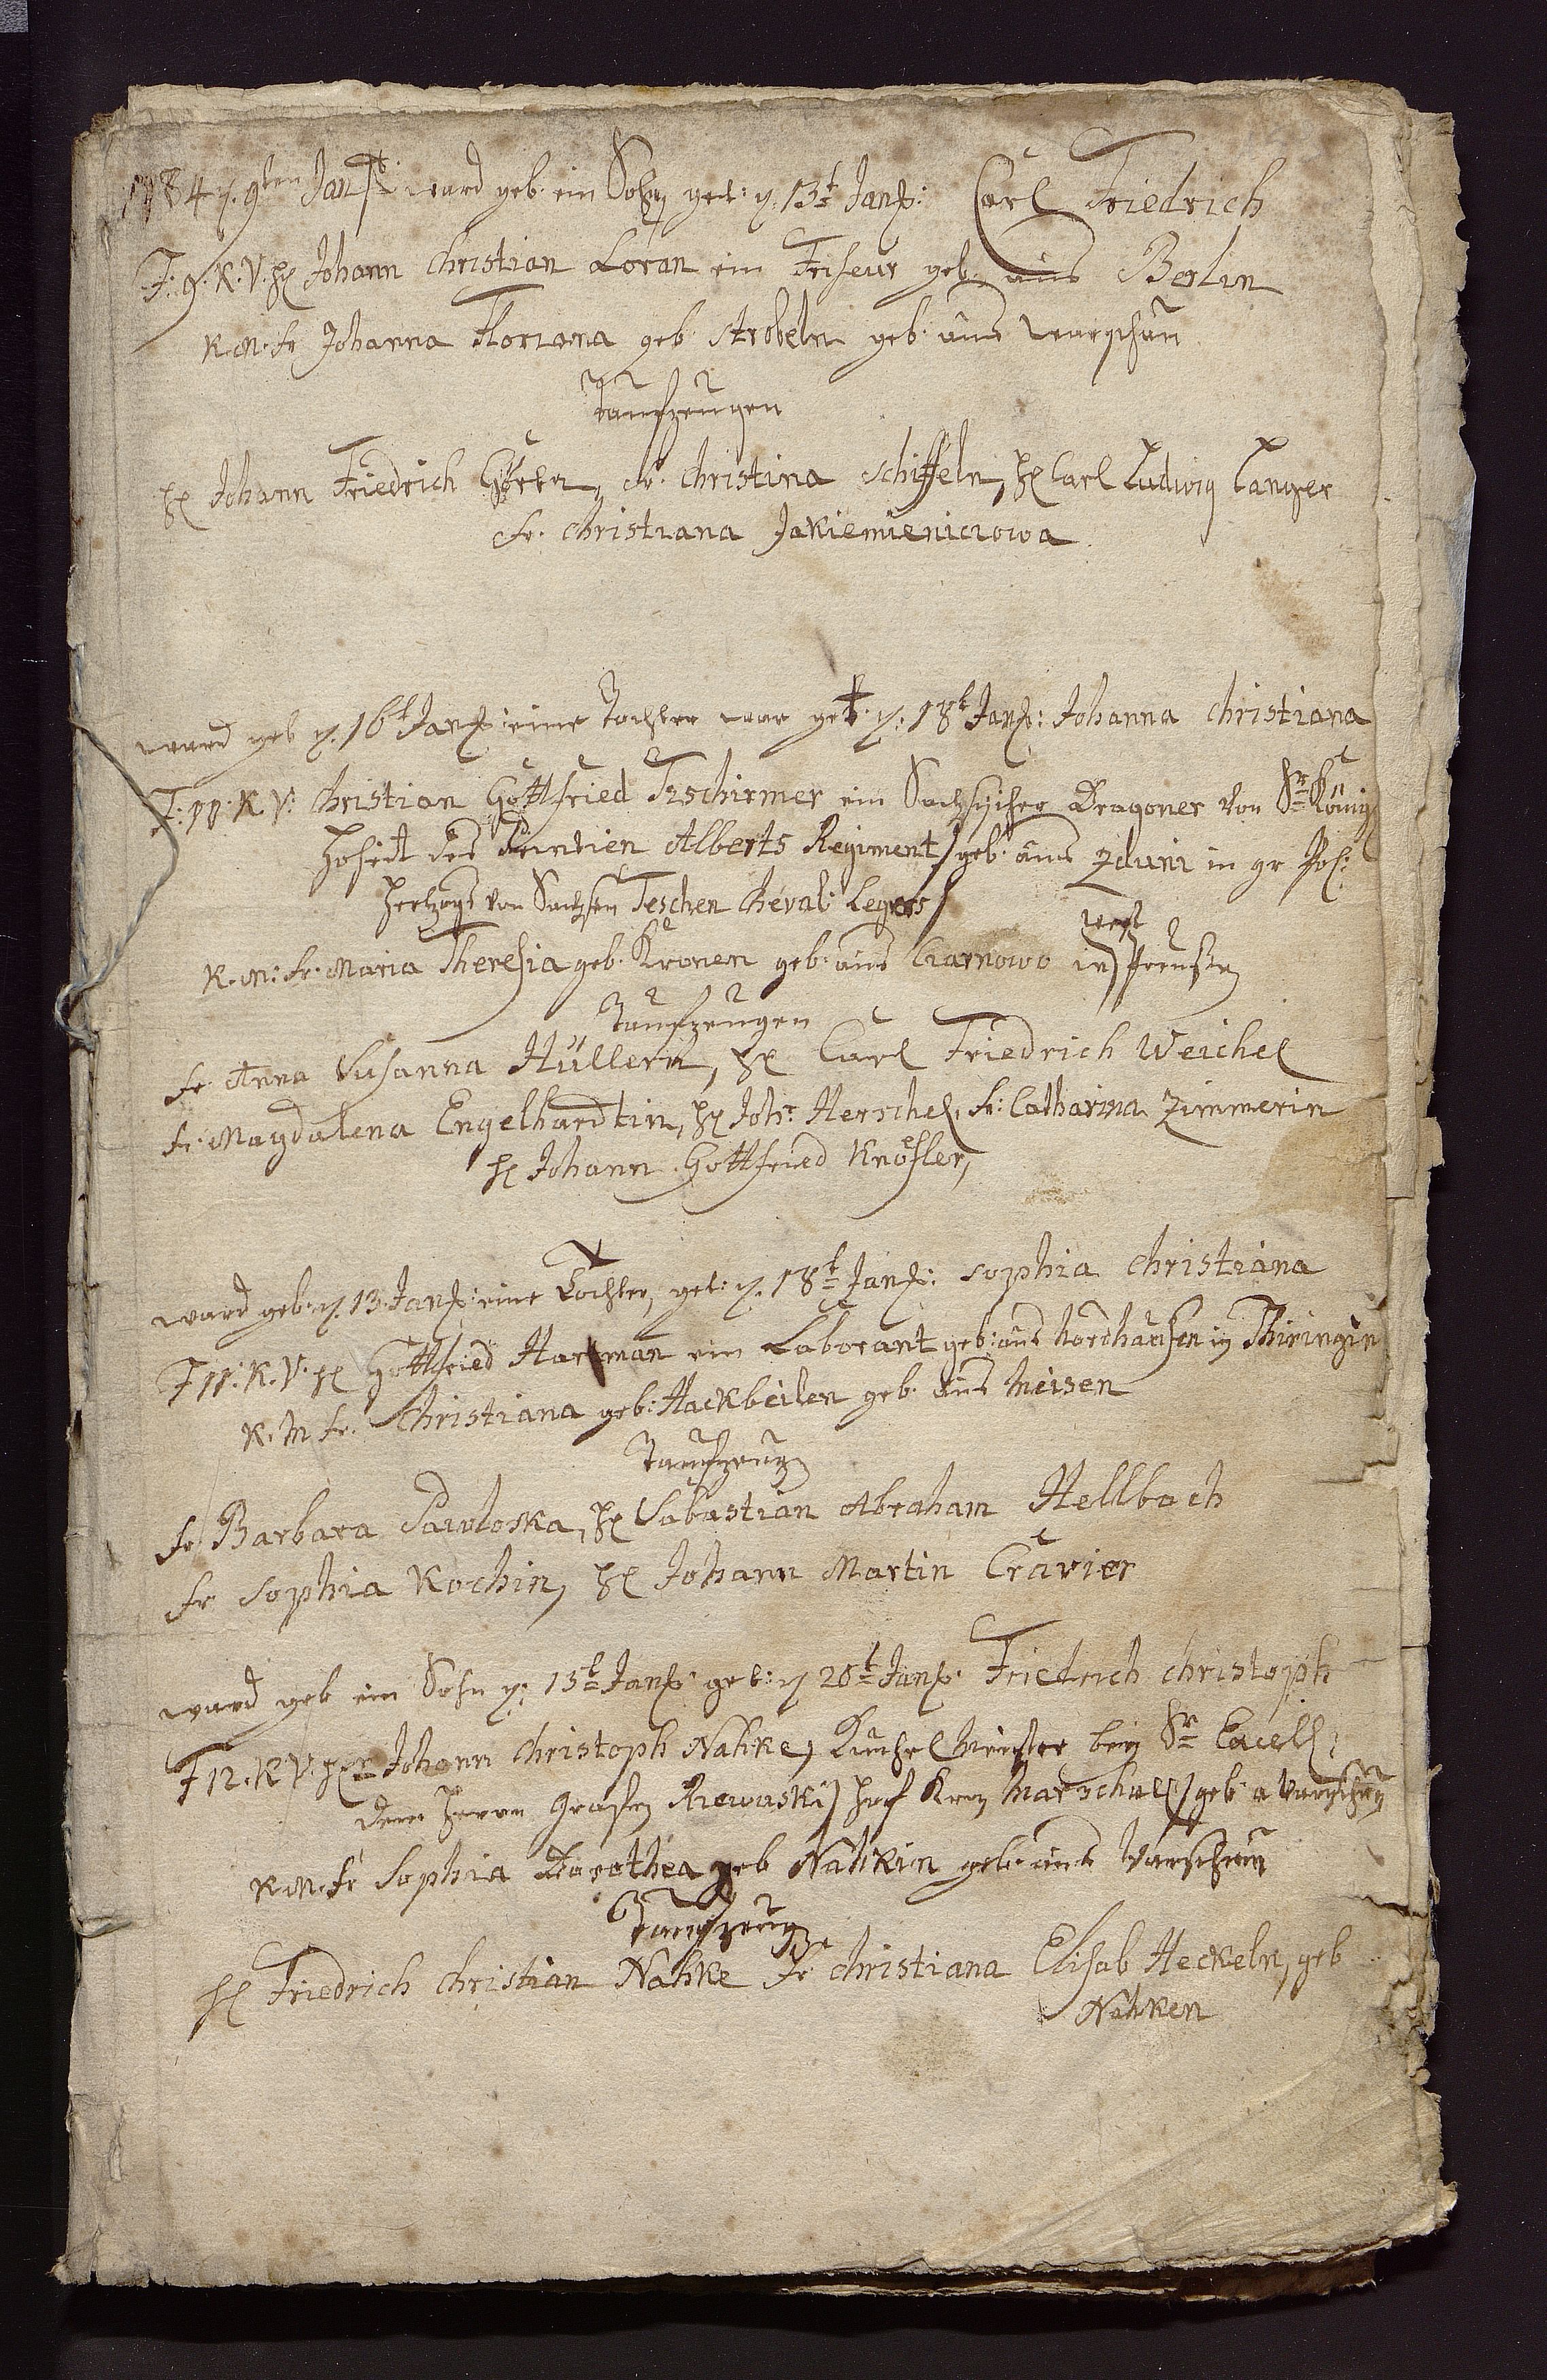 1784 d. 9ten Janr. ward geb. ein Sohn get: d. 13t Janr: Carl Friedrich
F: 9. K. V. H Johann Christian Loran ein Friseur geb. aus Berlin
K. M. Fr Johanna Floriana geb. Strobeln geb. aus Warschau
Taufzeugen
H Johann Friedrich Fr. Christina Schiffeln, H Carl Ludwig Langer
Fr. Christiana Jakiemieniczowa
ward geb d. 16t Janr: eine Tochter war get: d. 18t Janr: Johanna Christiana
K V. Christian Gottfried Tzschirmer ein Sächsischer Dragoner von Sr König
Hoheit des Printzen Alberts Regiment) geb. aus Zduni in gr Pol:
Hertzogs von Sachsen Teschen Cheval: Legers
K. M: Fr. Maria Theresia geb. Kronen geb. aus Czarnowo
West
Preußen
Taufzeugen
Fr. Anna Susanna Hüllern, H Carl Friedrich Weichel
Fr. Magdalena Engelhardtin, H Joh: Herschel, Fr: Catharina Zimmerin
H Johann Gottfried Knöfler,
ward geb. d. 13. Janr: eine Tochter, get: d. 18t Janr: Sophia Christiana
K. V. H Gottfried Hartman ein Laborant geb: aus Nordhausen in Thiringin
K. M Fr. Christiana geb: Hackbeilen geb. aus Meisen
Taufzeug
Fr Barbara Pawloska, H Sabastian Abraham Hellbach
Fr Sophia Kochin, H Johann Martin Cravier
ward geb ein Sohn d. 15t Janr get: d 20t Janr. Friedrich Christoph
F 12. K V. Johann Christoph Nahke, Küchel Meister bey Sr Excell:
dem Herrn Grafen Rzewuski) Hof Kron Marschall) geb. a Warschau
K. M. Fr Sophia Dorothea geb Nahkin geb. aus Warschau
Taufzeug
H Friedrich Christian Nahke Fr Christiana Elisab Heckeln, geb
Nahken